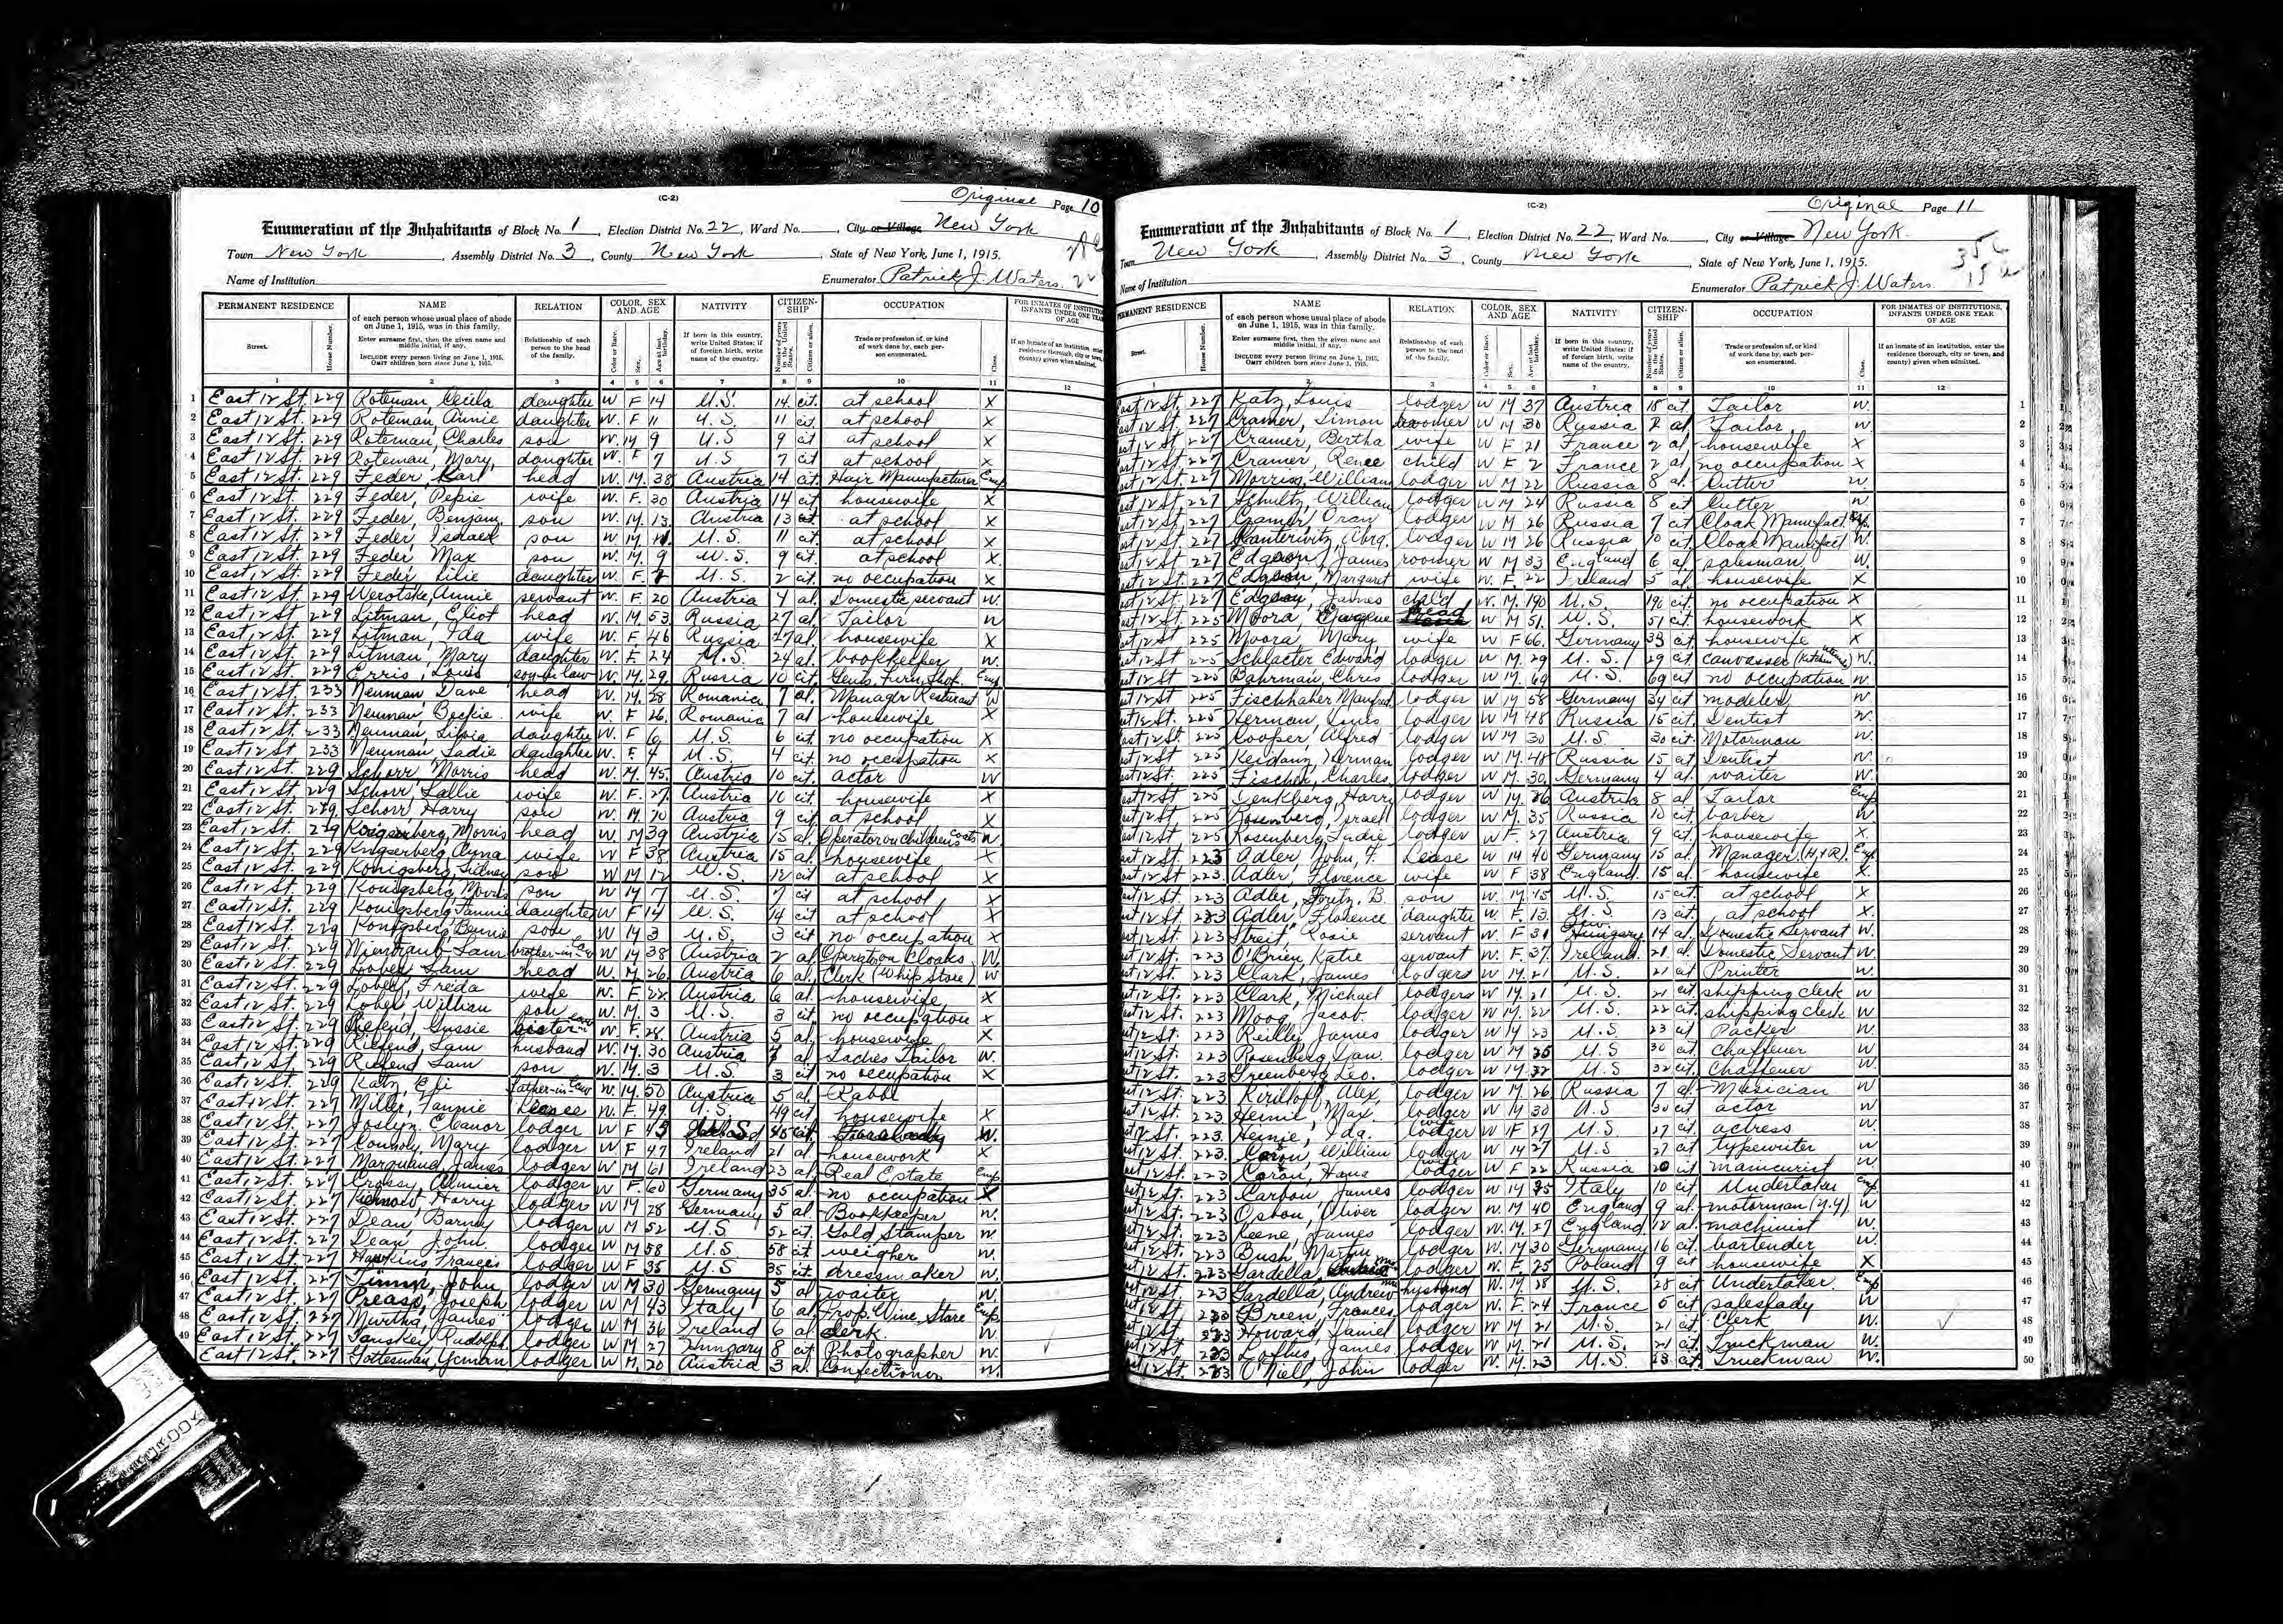 (C-2)
Original Page 10
Enumeration of the Inhabitants of Block No. 1, Election District No. 22, Ward No. , City or Village New York
Town New York, Assembly District No. 3, County New York, State of New York, June 1, 1915.
Name of Institution Enumerator Patrick J. Waters
PERMANENT RESIDENCE NAME RELATION COLOR, SEX AND AGE NATIVITY CITIZENSHIP OCCUPATION
1 East 12 St. 229 Roteman, Cecila daughter W F 14 U.S. 14 cit. at school X
2 East 12 St. 229 Roteman, Annie daughter W. F 11 U.S. 11 cit. at school X
3 East 12 St. 229 Roteman, Charles son W. M 9 U.S 9 cit at school X
4 East 12 St. 229 Roteman, Mary, daughter W. F 7 U.S 7 cit at school X
5 East 12 St. 229 Feder Karl head W. M. 38 Austria 14 cit. Hair Manufacturer Emp
6 East 12 St. 229 Feder, Pepie wife W. F. 30 Austria 14 cit. housewife X
7 East 12 St. 229 Feder, Benjam. son W. M. 13 Austria 13 cit. at school X
8 East 12 St. 229 Feder Israel son W M 11. U.S. 11 cit. at school X
9 East 12 St. 229 Feder, Max son W. M. 9 U.S. 9 cit. at school X
10 East 12 St. 229 Feder Lilie daughter W. F. 2 U.S. 2 cit. no occupation X
11 East 12 St. 229 Werotske, Annie servant W. F. 20 Austria 4 al. Domestic servant W.
12 East 12 St. 229 Litman, Eliot head W. M. 53 Russia 27 al. Tailor W
13 East 12 St. 229 Litman, Ida wife W. F 46 Russia 27 al. housewife X
14 East 12 St. 229 Litman, Mary daughter W. F. 24 U.S. 24 al. bookkeeper W.
15 East 12 St. 229 Erris, Louis son-in-law W. M. 29. Russia 10 cit. Gents. Furn. Shop. Emp
16 East 12 St. 233 Neuman Dave head W. M. 28 Romania 7 al. Managr Resturant W
17 East 12 St. 233 Neuman, Beckie wife W. F 26. Romania 7 al housewife X
18 East 12 St. 233 Neuman, Silvia daughter W. F 6 U.S. 6 cit. no occupation X
19 East 12 St 233 Neuman, Sadie daughter W. F. 4 U.S. 4 cit. no occupation X
20 East 12 St. 229 Schorr Morris head W. M. 45. Austria 10 cit. actor W
21 East 12 St. 229 Schorr Sallie wife W. F. 27. Austria 10 cit. housewife X
22 East 12 St. 229 Schorr, Harry son W. M. Austria 9 cit. at school X
23 East 12 St. 229 Morris head W. M 39 Austria 15 al. Operator on Childrens Coats W
24 East 12 St. 229 wife W F 38 Austria 15 al. housewife X
25 East 12 St. 229 Konigsberg, Sidney son W M 12 U.S. 12 cit at school X
26 East 12 St. 229 Konigsberg, Morris son W M 7 U.S. 7 cit at school X
27 East 12 St. 229 Konigsberg Fannie daughter W F 14 U.S. 14 cit at school X
28 East 12 St. 229 Konigsberg Bennie son W M 3 U.S. 3 cit no occupation X
29 East 12 St. 229 Sam brother-in-law W M 38 Austria 2 al Operat on Cloaks W.
30 East 12 St. 229 Lobel, Sam head W. M. 26 Austria 6 al. Clerk (Whip Store) W
31 East 12 St. 229 Lobel, Freda wife W. F. 22 Austria 6 al. housewife X
32 East 12 St. 229 Lobel, William son W. M. 3 U.S. 3 cit no occupation X
33 East 12 St. 229 Gussie W. F. 28. Austria 5 al. housewife X
34 East 12 St. 229 Sam husband W. M. 30 Austria al. Ladies Tailor W.
35 East 12 St. 229 Sam son W. M. 3 U.S. 3 cit no occupation X
36 East 12 St. 229 Katz, father-in-law W. M. 50 Austria 5 al. Rabbi
37 East 12 St. 227 Miller, Fannie W. F. 49. U.S. 49 cit housewife X
38 East 12 St. 227 Joslyn, Eleanor lodger W F W.
39 East 12 St. 227 Mary lodger W F 47 Ireland 21 al. housework X
40 East 12 St. 227 James lodger W M 61 Ireland 23 al. Real Estate Emp
41 East 12 St. 227 lodger W F. 60 Germany 35 al. no occupation X
42 East 12 St. 227 Harry lodger W M 28 Germany 5 al. Bookkeeper W.
43 East 12 St. 227 Dean Barney lodger W M 52 U.S. 52 cit. Gold Stamper W
44 East 12 St. 227 Dean, John. lodger W M 58 U.S. 58 cit weigher W.
45 East 12 St. 227 Hawkins, Frances lodger W F 35 U.S 35 cit. dressmaker W.
46 East 12 St. 227 John lodger W M 30 Germany 5 al waiter W.
47 East 12 St. 227 Joseph lodger W M 43 Italy 6 al. Prop. Wine Store Emp
48 East 12 St. 227 Murtha, James lodger W M 36 Ireland 6 al clerk. W.
49 East 12 St. 227 Rudolph lodger W M 27 Hungary 8 cit. Photographer W.
East 12 St. 227 Gottesman, lodger W M. 20 Austria 3 al. Confectioner W.
(C-2)
Original Page 11
Enumeration of the Inhabitants of Block No. 1, Election District No. 22, Ward No. , City or Village New York.
Town New York, Assembly District No. 3, County New York, State of New York, June 1, 1915.
Name of Institution Enumerator Patrick J. Waters.
PERMANENT RESIDENCE NAME RELATION COLOR, SEX AND AGE NATIVITY CITIZENSHIP OCCUPATION FOR INMATES OF INSTITUTIONS, INFANTS UNDER ONE YEAR OF AGE
East 12 St. 227 Katz, Louis lodger W M 37 Austria 18 cit Tailor W. 1
East 12 St. 227 Cramer, Simon W M 30 Russia 2 al Tailor W 2
East 12 St. 227 Cramer, Bertha wife W F 21 France 2 al, housewife X 3
East 12 St. 227 Cramer, Renee child W F 2 France 2 al, no occupation X 4
East 12 St. 227 Morris, William lodger W M 22 Russia 8 al. Cutter W. 5
East 12 St. 227 Schultz, William lodger W M 24 Russia 8 cit Cutter W 6
East 12 St. 227 Cramer, lodger W M 26 Russia 7 cit Cloak Manufact. Emp. 7
East 12 St. 227 Abra. lodger W M 26 Russia 10 cit. Cloak Manufact W. 8
East 12 St. 227 James roomer W M 33 England 6 al salesman W. 9
East 12 St. 227 Margaret wife W. F. 22 Ireland 5 al. housewife X 10
East 12 St. 227 James child W. M. U.S. cit. no occupation X 11
East 12 St 225 Moora, Eugene head W M 51. U.S. 51 cit. housework X 12
East 12 St 225 Moora, Mary, wife W F 66. Germany 33 cit housewife X 13
East 12 St 225 Schlacter Edward lodger W M. 29 U.S. 29 cit canvasser (Kitchen utensils) W. 14
East 12 St 225 Bahrman, Chris lodger W M. 69 U.S. 69 cit no occupation W. 15
East 12 St. 225 Fischhaker Manfred lodger W M 58 Germany 34 cit modeler W 16
East 12 St. 225 Herman, Louis lodger W M 48 Russia 15 cit. Dentist W. 17
East 12 St 225 Cooper Alfred lodger W M 30 U.S. 30 cit. Motorman W. 18
East 12 St 225 Herman lodger W M. 48 Russia 15 cit Dentist W. 19
East 12 St. 225 Fischer, Charles lodger W M. 30, Germany 4 al. waiter W. 20
East 12 St 225 Harry lodger W M. Austria 8 al Tailor Emp 21
East 12 St. 225 Rosenberg, Israel lodger W M. 35 Russia 10 cit barber W 22
East 12 St 225 Rosenberg, Sadie lodger W F. 27 Austria 9 cit. housewife X 23
East 12 St. 223 Adler, John, F. Lease W M 40 Germany 15 al. Manager (H.&R). Emp. 24
East 12 St. 223. Adler, Florence wife W F 38 England. 15 al. housewife X. 25
East 12 St. 223 Adler, Fritz, B. son W. M. 15 U.S. 15 cit. at school X 26
East 12 St. 223 Adler, Florence daughter W. F. 13. U.S. 13 cit. at school X. 27
East 12 St. 223 Streit, Rosie servant W. F 31 Hungary 14 al. Domestic Servant W. 28
East 12 St. 223 O'Brien, Katie servant W. F. 37. Ireland. 21 al. Domestic Servant W. 29
East 12 St. 223 Clark, James lodgers W M. 21 U.S. 21 cit Printer W. 30
East 12 St. 223 Clark, Michael lodgers W M. 21 U.S. 21 cit shipping clerk W 31
East 12 St. 223 Moog, Jacob lodger W M. 22 U.S 22 cit. shipping clerk W 32
East 12 St. 223 Reilly, James lodger W M 23 U.S 23 cit Packer W. 33
East 12 St. 223 Rosenberg, Sam. lodger W M U.S 30 cit. chaffeuer W 34
East 12 St. 223 Greenberg, Leo. lodger W M 32 U.S 32 cit. Chaffeuer W 35
East 12 St. 223 Alex, lodger W M. 26 Russia 7 al. Musician W 36
East 12 St. 223 Max lodger W M 30 U.S 30 cit actor W 37
East 12 St. 223. Heinie, Ida. W F 27 U.S. 27 cit actress W. 38
East 12 St. 223. William lodger W M 27 U.S. 27 cit typewriter W 39
East 12 St. 223 W F 22 Russia 20 cit manicurist W. 40
East 12 St. 223 Carbon, James lodger W M Italy 10 cit Undertaker Emp. 41
East 12 St. 223 Oliver lodger W. M 40 England 9 al. motorman W 42
East 12 St. 223 Keene, James lodger W. M. 27 England 12 al. machinist W. 43
East 12 St. 223 Bush, Martin lodger W. M 30 Germany 16 cit. bartender W. 44
East 12 St. 223 Gardella, lodger W. F. 25 Poland 9 cit housewife X 45
East 12 St. 223 Gardella, Andrew husband W. M 28 U.S. 28 cit Undertaker. Emp 46
East 12 St. Breen, Frances lodger W. F. 24 France 5 cit saleslady W 47
East 12 St. Howard, Daniel lodger W M 21 U.S. 21 cit. Clerk W. 48
East 12 St. Loftus, James lodger W M. 21 U.S. 21 cit. Truckman W. 49
East 12 St. O'Niell, John lodger W. M. 23 U.S. 23 cit. Truckman W. 50